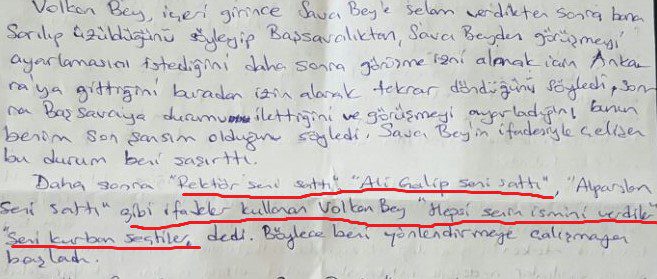 Volkan Bey, içeri girince Savcı Bey'le selam verdikten sonra bana
Sarılıp üzüldüğünü söyleyip Başsavcılıktan, Savcı Beyden görüşmeyi
ayarlamasını istediğini daha sonra görüşme izni almak için Anka
ra'ya gittiğini buradan izin alarak tekrar döndüğünü söyledi, son
ra Başsavcıya durumu ilettiğini ve görüşmeyi ayarladığını, bunun
benim son şansım olduğunu söyledi. Savcı Bey'in ifadesiyle çelişen
bu durum beni şaşırttı.
Daha sonra "Rektör seni sattı" "Ali Galip seni sattı", "Alparslan
seni sattı" gibi ifadeler kullanan Volkan Bey "Hepsi senin ismini verdiler"
"Seni kurban seçtiler, dedi. Böylece beni yönlendirmeye çalışmaya
başladı.